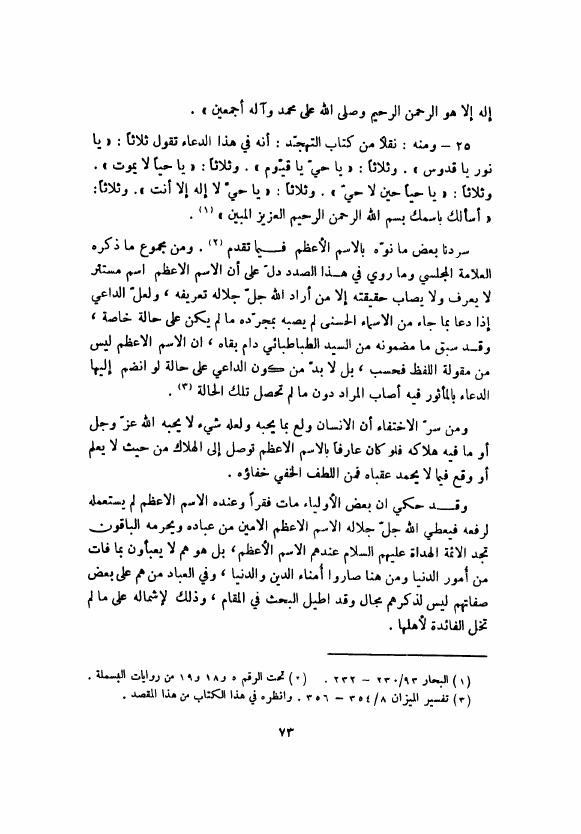 إله إلا هو الرحمن الرحيم وصلى الله على محمد وآله أجمعين » .
٢٥ – ومنه : نقلاً من كتاب التهجّد : أنه في هذا الدعاء تقول ثلاثاً : « يا
نور يا قدوس » . وثلاثاً : « يا حيّ يا قيّوم » . وثلاثاً : « يا حياً لا يموت » .
وثلاثاً : « يا حياً حين لا حيّ » . وثلاثاً : « يا حيّ لا إله إلا أنت » . وثلاثاً :
« أسألك باسمك بسم الله الرحمن الرحيم العزيز المبين » (١) .
سردنا بعض ما نوّه بالاسم الأعظم فيما تقدم (٢) . ومن مجموع ما ذكره
العلامة المجلسي وما روي في هذا الصدد دلّ على أن الاسم الاعظم اسم مستثر
لا يعرف ولا يصاب حقيقته إلا من أراد الله جلّ جلاله تعريفه ، ولعلّ الداعي
إذا دعا بما جاء من الاسماء الحسنى لم يصبه بمجرّده ما لم يكن على حالة خاصة ،
وقد سبق ما مضمونه من السيد الطباطبائي دام بقاه ، ان الاسم الاعظم ليس
من مقولة اللفظ فحسب ، بل لا بدّ من كون الداعي على حالة لو انضم إليها
الدعاء بالمأثور فيه أصاب المراد دون ما لم تحصل تلك الحالة (٣) .
ومن سرّ الاختفاء أن الانسان ولع بما يحبه ولعله شيء لا يحبه الله عزّ وجل
أو ما فيه هلاكه فلو كان عارفاً بالاسم الاعظم توصل إلى الهلاك من حيث لا يعلم
أو وقع فيما لا يحمد عقباه فمن اللطف الخفي خفاؤه .
وقد حكي ان بعض الأولياء مات فقراً وعنده الاسم الاعظم لم يستعمله
لرفعه فيعطي الله جلّ جلاله الاسم الاعظم الامين من عباده ويحرمه الباقون
تجد الائمة الهداة عليهم السلام عندهم الاسم الأعظم، بل هو هم لا يعبأون بما فات
من أمور الدنيا ومن هنا صاروا أمناء الدين والدنيا ، وفي العباد من هم على بعض
صفاتهم ليس لذكرهم مجال وقد اطيل البحث في المقام ، وذلك لإشماله على ما لم
تخل الفائدة لأهلها .
(١) البحار ٢٣٠/٩٣ – ٢٣٢ . (٢) تحت الرقم ٥ و١٨ و١٩ من روايات البسملة .
(٣) تفسير الميزان ٣٥٤/٨ – ٣٥٦ . وانظره في هذا الكتاب من هذا المقصد .
٧٣